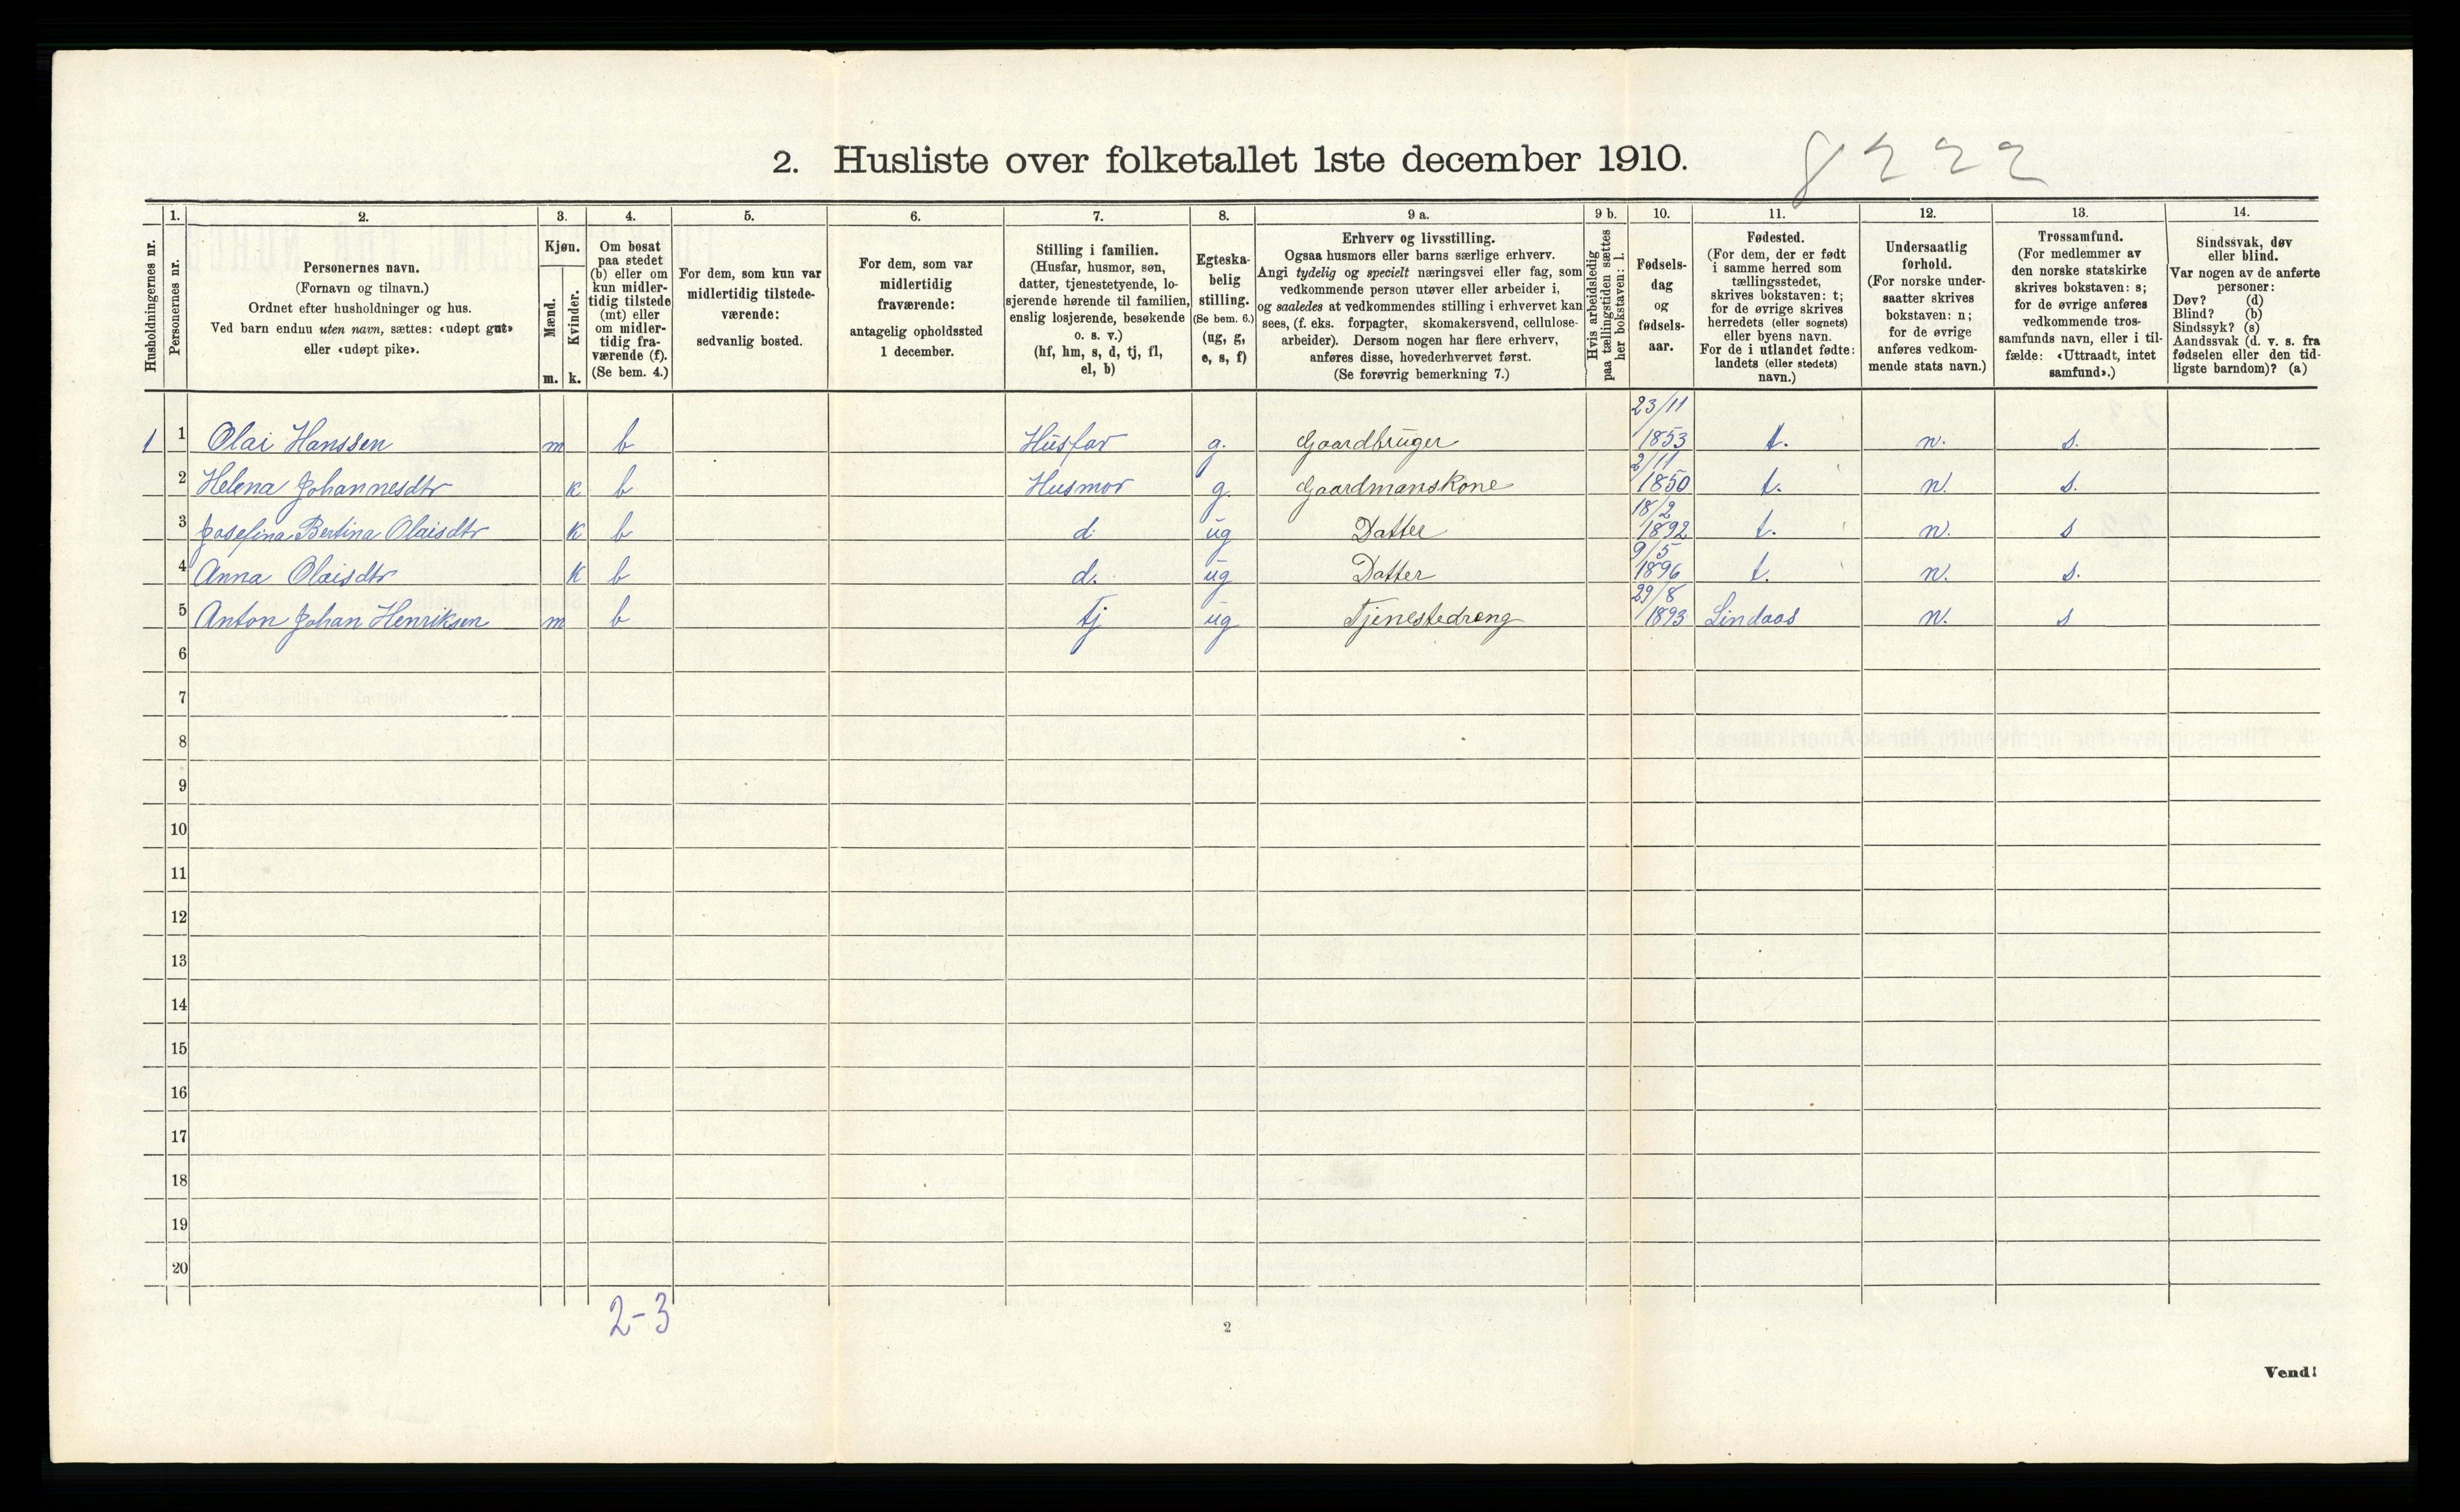 2. Husliste over folketallet 1ste december 1910.
8222
1. 2. 3. 4. 5. 6. 7. 8. 9 a. 9 b. 10. 11. 12. 13. 14.
Husholdningernes nr.
Personernes nr.
Personernes navn.
(Fornavn og tilnavn.)
Ordnet efter husholdninger og hus.
Ved barn endnu uten navn, sættes: «udøpt gut»
eller «udøpt pike».
Kjøn.
Mænd.
Kvinder.
m. k.
Om bosat
paa stedet
(b) eller om
kun midler-
tidig tilstede
(mt) eller
om midler-
tidig fra-
værende (f).
(Se bem. 4.)
For dem, som kun var
midlertidig tilstede-
værende:
sedvanlig bosted.
For dem, som var
midlertidig
fraværende:
antagelig opholdssted
1 december.
Stilling i familien.
(Husfar, husmor, søn,
datter, tjenestetyende, lo-
sjerende hørende til familien,
enslig losjerende, besøkende
o. s. v.)
(hf, hm, s, d, tj, fl,
el, b)
Egteska-
belig
stilling.
(Se bem. 6.)
(ug, g,
e, s, f)
Erhverv og livsstilling.
Ogsaa husmors eller barns særlige erhverv.
Angi tydelig og specielt næringsvei eller fag, som
vedkommende person utøver eller arbeider i,
og saaledes at vedkommendes stilling i erhvervet kan
sees, (f. eks. forpagter, skomakersvend, cellulose-
arbeider). Dersom nogen har flere erhverv,
anføres disse, hovederhvervet først.
(Se forøvrig bemerkning 7.)
Hvis arbeidsledig
paa tællingstiden sættes
her bokstaven: l.
Fødsels-
dag
og
fødsels-
aar.
Fødested.
(For dem, der er født
i samme herred som
tællingsstedet,
skrives bokstaven: t;
for de øvrige skrives
herredets (eller sognets)
eller byens navn.
For de i utlandet fødte:
landets (eller stedets)
navn.)
Undersaatlig
forhold.
(For norske under-
saatter skrives
bokstaven: n;
for de øvrige
anføres vedkom-
mende stats navn.)
Trossamfund.
(For medlemmer av
den norske statskirke
skrives bokstaven: s;
for de øvrige anføres
vedkommende tros-
samfunds navn, eller i til-
fælde: «Uttraadt, intet
samfund».)
Sindssvak, døv
eller blind.
Var nogen av de anførte
personer:
Døv? (d)
Blind? (b)
Sindssyk? (s)
Aandssvak (d. v. s. fra
fødselen eller den tid-
ligste barndom)? (a)
1 1 Olai Hanssen m b Husfar g. Gaardbruger 23/11 1853 t. n. s.
2 Helena Johannesdtr k b Husmor g. Gaardmanskone 2/11 1850 t. n. s.
3 Josefina Bertina Olaisdtr k b d. ug Datter 18/2 1892 t. n. s
4 Anna Olaisdtr k b d. ug Datter 9/5 1896 t. n. s.
5 Anton Johan Henriksen m b tj ug Tjenestedreng 29/8 1893 Lindaas n. s
6
7
8
9
10
11
12
13
14
15
16
17
18
19
20
2-3
2
Vend!